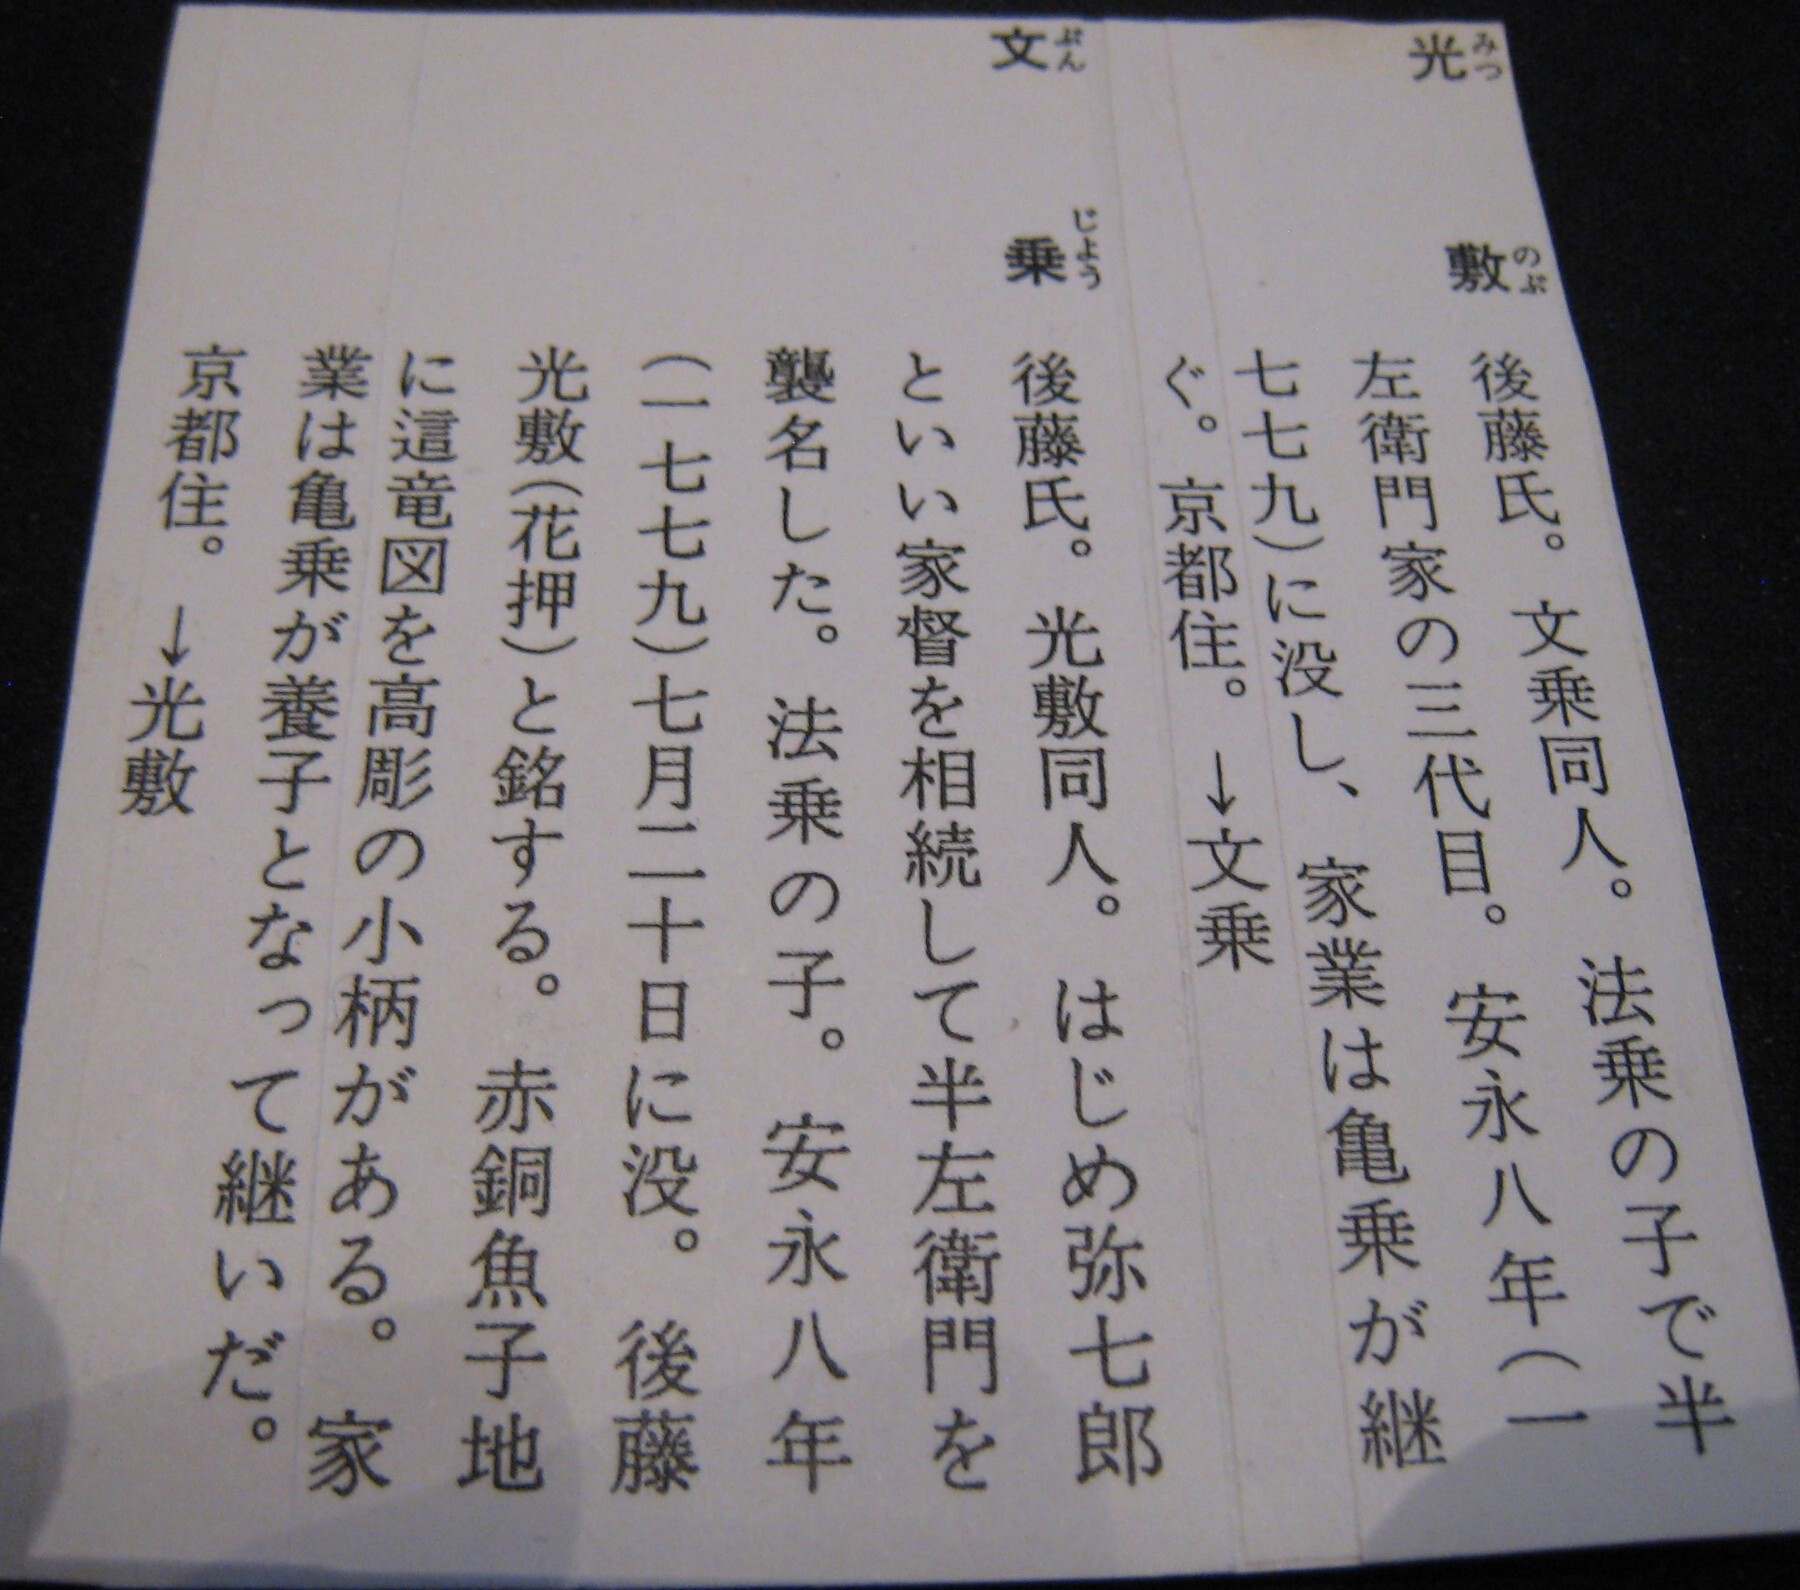 光敷 みつのぶ
後藤氏。文乗同人。法乗の子で半
左衛門家の三代目。安永八年(一
七七九)に没し、家業は亀乗が継
ぐ。京都住。→文乗
文乗 ぶんじよう
後藤氏。光敷同人。はじめ弥七郎
といい家督を相続して半左衛門を
襲名した。法乗の子。安永八年
(一七七九)七月二十日に没。後藤
光敷(花押)と銘する。赤銅魚子地
に這竜図を高彫の小柄がある。家
業は亀乗が養子となって継いだ。
京都住。→光敷